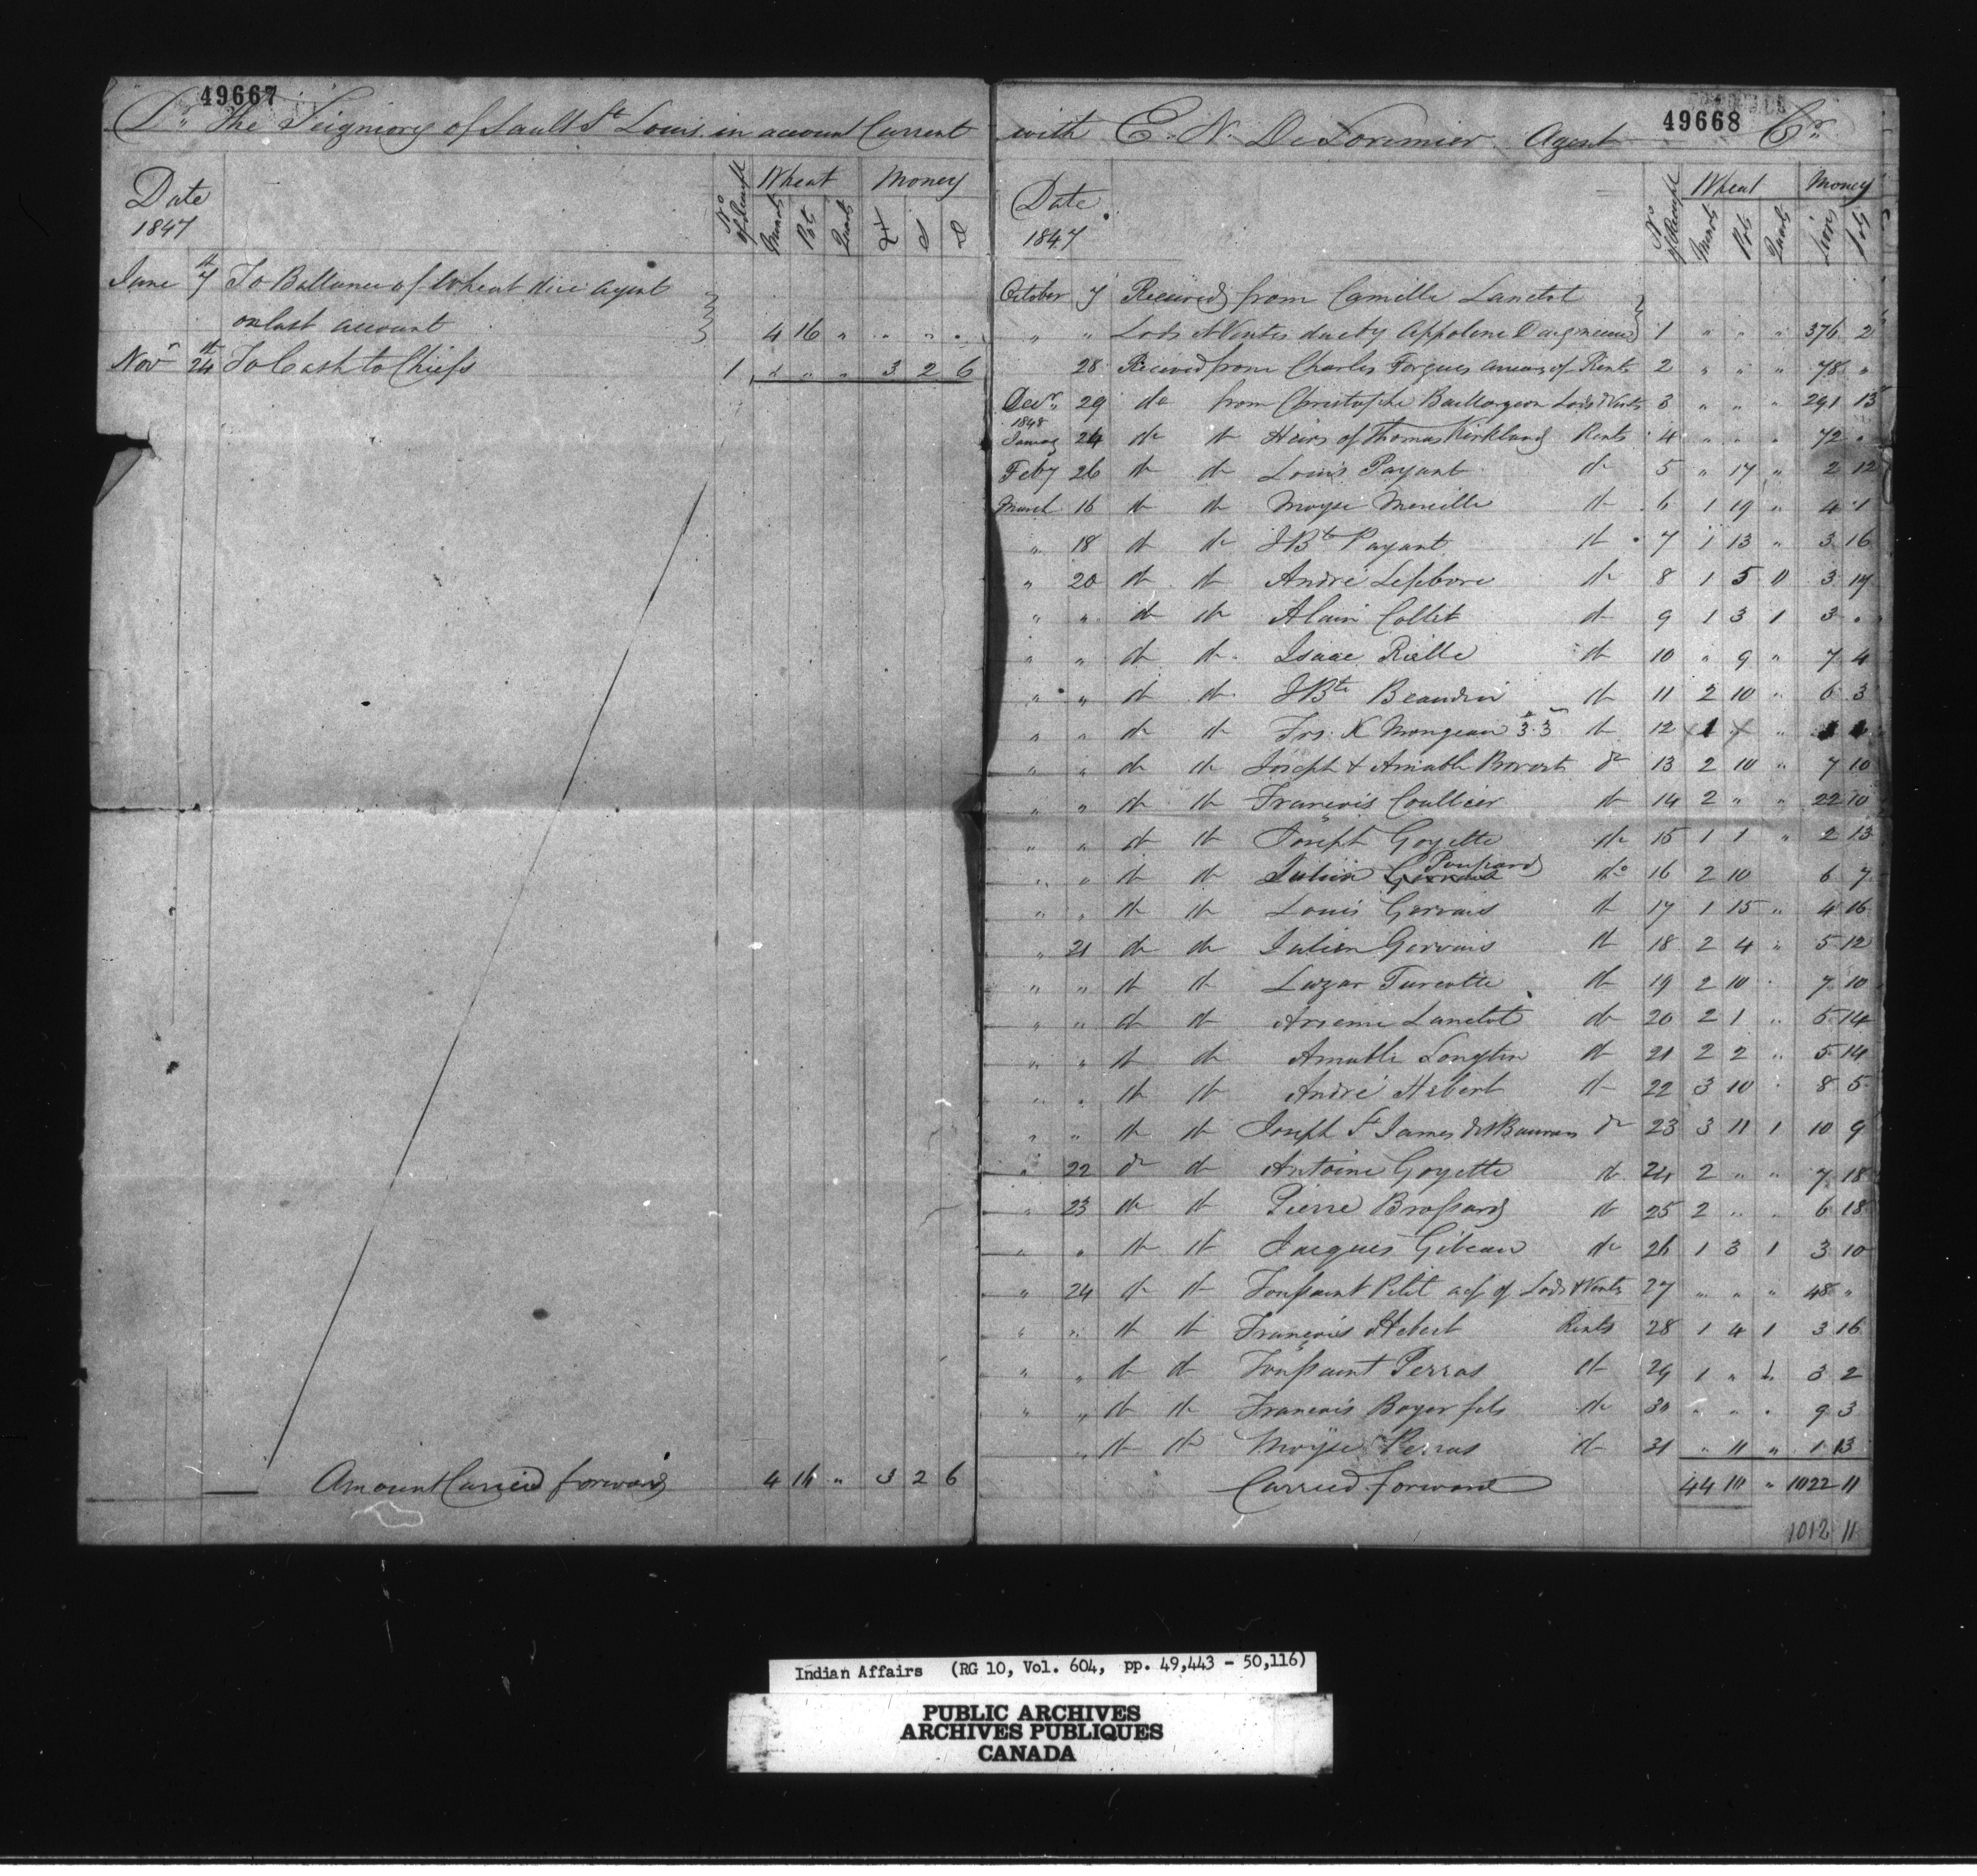 49667
Dr. The Seigniory of Sault St Louis in account Current
Date
1847
No of Receipt
Wheat
Money
Minots
Pots
Quarts
£
S
D
June 7th To Ballance of Wheat due agent
on last account 4 16 " " " "
Novr 24th To Cash to Chiefs 1 " " " 3 2 6
Amount Carried forward 4 16 " 3 2 6
49668
with E. N. DeLorimier Agent Cr.
Date
1847
No of Receipt
Wheat
Money
Minots
Pots
Quarts
Livres
Sols
October 7 Received from Camille Lanctot
" " Lods & Ventes due by Appolene 1 " " " 376 2
28 Received from Charles Forgues arrears of Rents 2 " " " 78 "
Decr 29 do from Christophe Baillargeon Lods & Vents 3 " " " 291 13
1848
January 24 do do Heirs of Thomas Kirkland Rents 4 " " " 72 "
Feby 26 do do Louis Payant do 5 " 17 " 2 12
March 16 do do Moyse Menille do 6 1 19 " 4 1
" 18 do do J Bte Payant do 7 1 13 " 3 16
" 20 do do André Lefebvre do 8 1 5 " 3 17
" " do do Alain Collet do 9 1 3 1 3 "
" " do do Isaac Rielle do 10 " 9 " 7 4
" " do do J Bte Beaudin do 11 2 10 " 6 3
" " do do Frs. X Mongeau 3.3 do 12
" " do do Joseph & Amable Provost do 13 2 10 " 7 10
" " do do François Coullier do 14 2 " " 22 10
" " do do Joseph Goyette do 15 1 1 " 2 13
" " do do Julien Poupard do 16 2 10 6 7
" " do do Louis Gervais do 17 1 15 " 4 16
" 21 do do Julien Gervais do 18 2 4 " 5 12
" " do do Lazar Turcotte do 19 2 10 " 7 10
" " do do Arsenne Lanctot do 20 2 1 " 5 14
" " do do Amable Longtin do 21 2 2 " 5 14
" " do do André Hebert do 22 3 10 " 8 5
" " do do Joseph St James do 23 3 11 1 10 9
" 22 do do Antoine Goyette do 24 2 " " 7 18
" 23 do do Pierre Brossard do 25 2 " " 6 18
" " do do Jacques Gibeau do 26 1 3 1 3 10
" 24 do do Toussaint Petit a/c of Lods & Vents 27 " " " 48 "
" " do do François Hebert Rents 28 1 4 1 3 16
" " do do Toussaint Perras do 29 1 " 1 3 2
" " do do François Boyer fils do 30 " " " 9 3
" do do Moyse Perras do 31 " 11 " 1 13
Carried forward 44 10 " 1022 11
1012 11
Indian Affairs (RG 10, Vol. 604, pp. 49,443 - 50,116)
PUBLIC ARCHIVES
ARCHIVES PUBLIQUES
CANADA